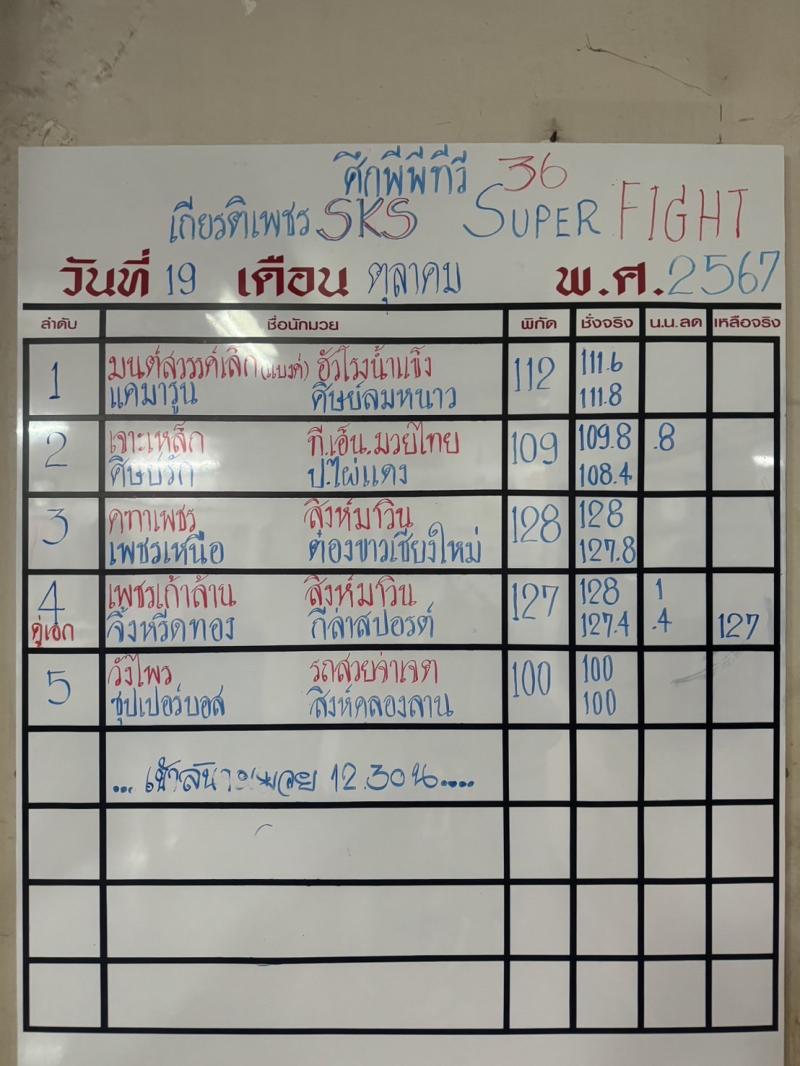 ศึกพีพีทีวี 36
เกียรติเพชร SKS SUPER FIGHT
วันที่ 19 เดือน ตุลาคม พ.ศ. 2567
ลำดับ ชื่อนักมวย พิกัด ชั่งจริง น.น.ลด เหลือจริง
1 มนต์สวรรค์เล็ก (แบงค์) ฮั่วโรงน้ำแข็ง 112 111.6
แคมารูน ศิษย์ลมหนาว 111.8
2 เจาะเหล็ก ที.เอ็น.มวยไทย 109 109.8 .8
ศิษย์รัก ป.ไผ่แดง 108.4
3 คฑาเพชร สิงห์มาวิน 128 128
เพชรเหนือ ต๋องขาวเชียงใหม่ 127.8
4 เพชรเก้าล้าน สิงห์มาวิน 127 128 1
คู่เอก จิ้งหรีดทอง กีล่าสปอรต์ 127.4 .4 127
5 วังไพร รถสวยจ่าเจต 100 100
ซุปเปอร์บอส สิงห์คลองลาน 100
12.30 น.....